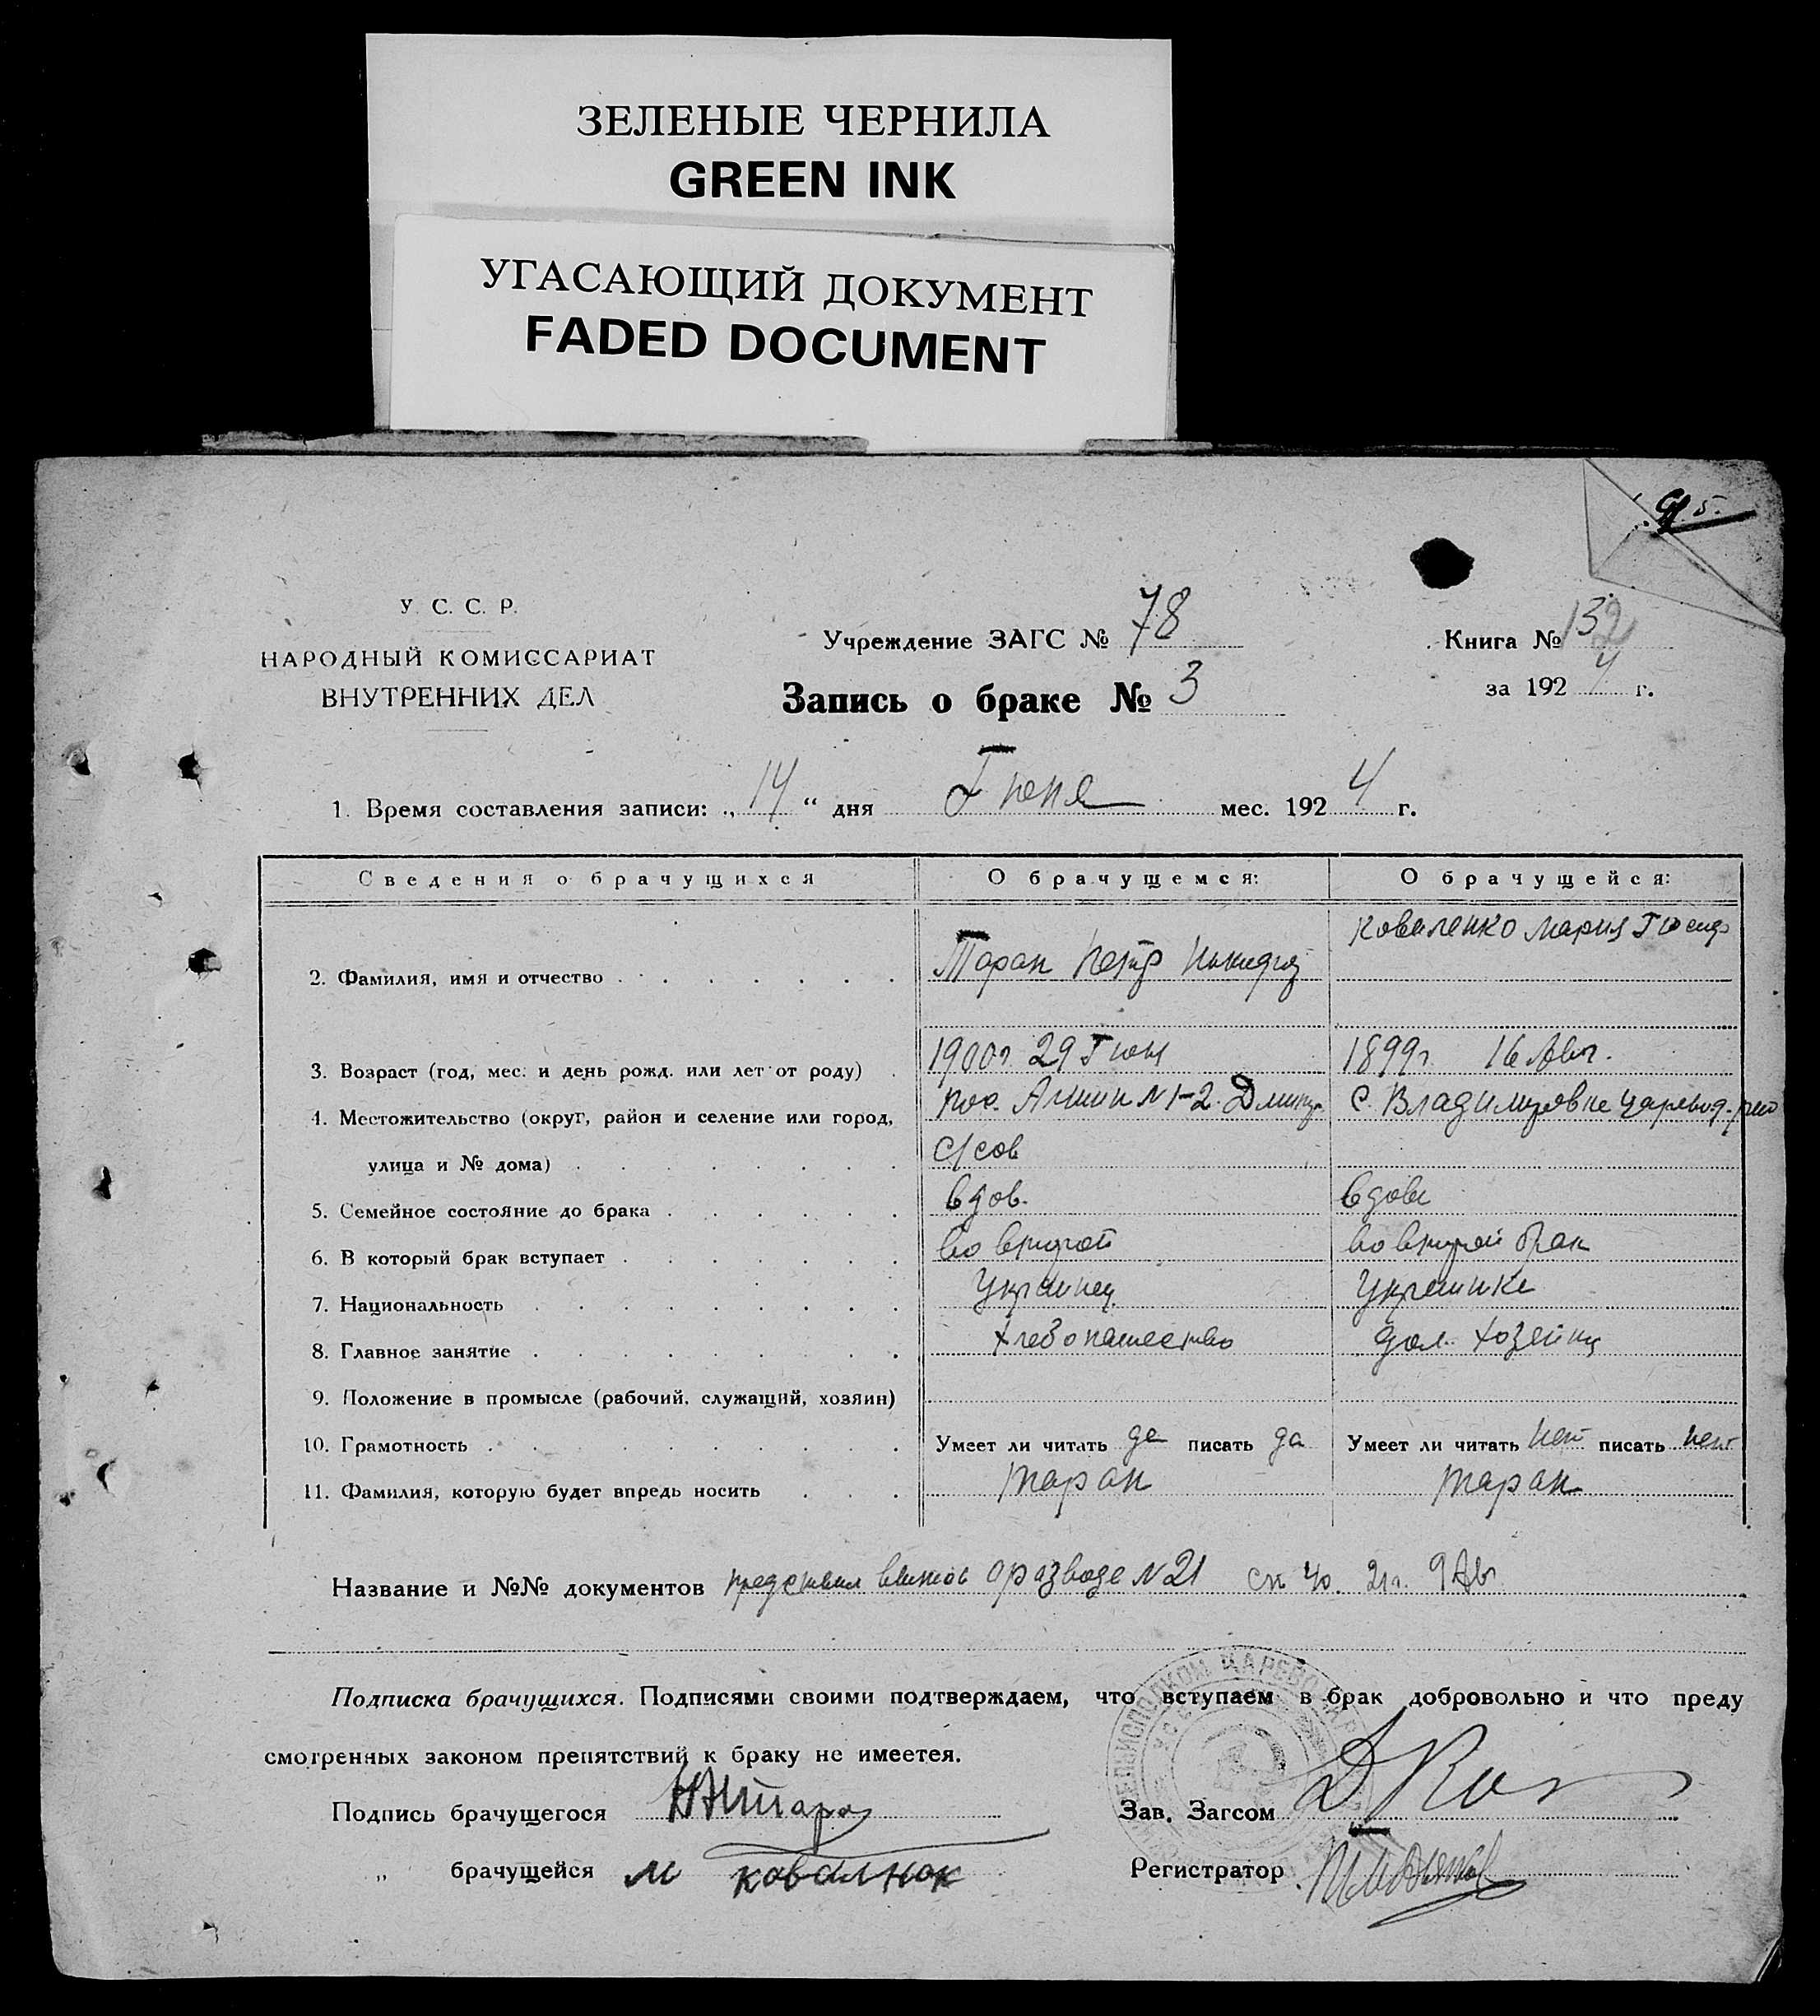 ЗЕЛЕНЫЕ ЧЕРНИЛА
GREEN INK
УГАСАЮЩИЙ ДОКУМЕНТ
FADED DOCUMENT
У. С. С. Р.
НАРОДНЫЙ КОМИССАРИАТ
ВНУТРЕННИХ ДЕЛ
Учреждение ЗАГС № 78
Запись о браке № 3
Книга № 132
за 1924 г.
1. Время составления записи: „14“ дня Июня мес. 1924 г.
Сведения о брачущихся О брачущемся: О брачущейся:
2. Фамилия, имя и отчество Таран Петр Коваленко Мария
3. Возраст (год, мес. и день рожд. или лет от роду) 1900г. 29 1899г. 16 Авг.
4. Местожительство (округ, район и селение или город, пос. №1-2 с. Владимировке
улица и № дома) с/сов
5. Семейное состояние до брака вдов. вдова
6. В который брак вступает во второй во второй брак
7. Национальность Украинец Украинка
8. Главное занятие хлебопашество дом. хозяйка
9. Положение в промысле (рабочий, служащий, хозяин)
10. Грамотность Умеет ли читать да писать да Умеет ли читать нет писать нет
11. Фамилия, которую будет впредь носить Таран Таран
Название и №№ документов о разводе №21
Подписка брачущихся. Подписями своими подтверждаем, что вступаем в брак добровольно и что преду
смотренных законом препятствий к браку не имеетея.
Подпись брачущегося
Зав. Загсом
„ брачущейся м
Регистратор